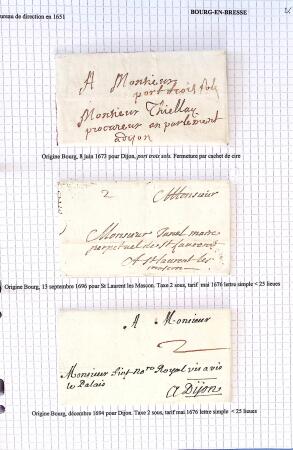 ureau de direction en 1651
BOURG-EN-BRESSE
A Monsieur
port trois sols
Monsieur Thiellay
procureur en parlement
adijon
Origine Bourg, 8 juin 1673 pour Dijon, port trois sols. Fermeture par cachet de cire
2
A Monsieur
Monsieur Tunel maire
perpetuel de st laurens
A st laurent les
mascon
Origine Bourg, 13 septembre 1696 pour St Laurent les Mascon. Taxe 2 sous, tarif mai 1676 lettre simple < 25 lieues
A Monsieur
2
Monsieur no.re Royal vis a vis
le Palais
A Dijon
Origine Bourg, décembre 1694 pour Dijon. Taxe 2 sous, tarif mai 1676 lettre simple < 25 lieues